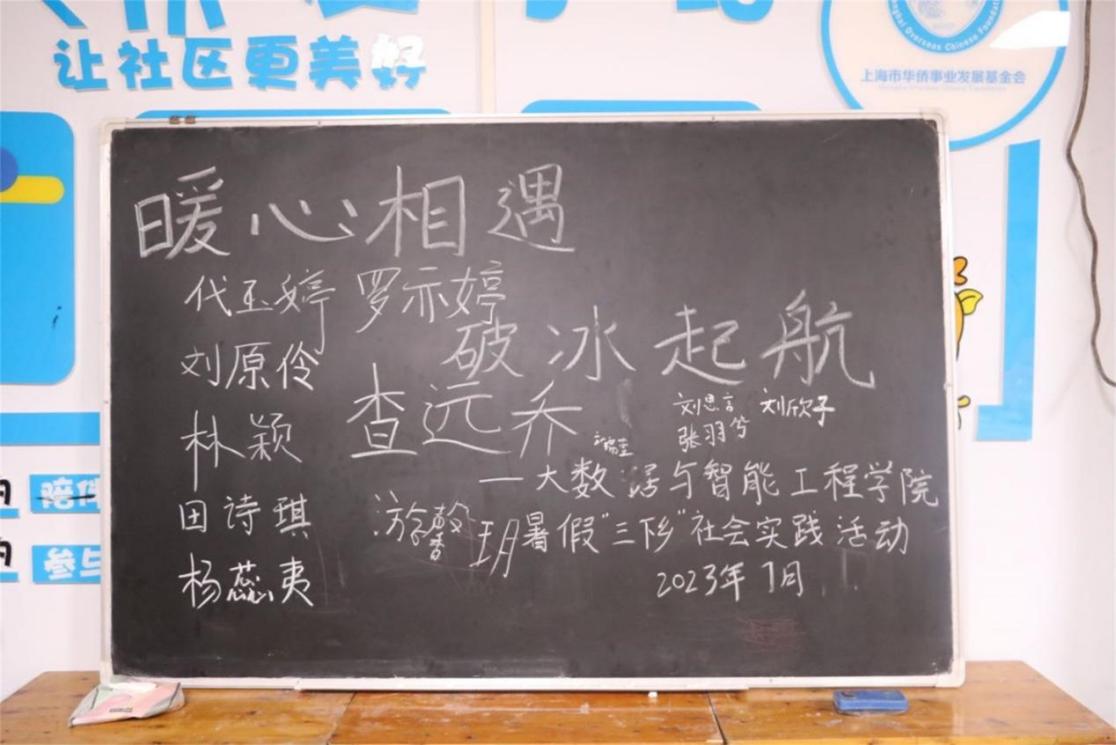 让社区更美好
Shanghai Overseas Chinese Foundation
上海市华侨事业发展基金会
暖心相遇
代玉婷 罗示婷
破冰起航
刘原伶
查远乔
刘思言 刘欣子
张羽兮
林颖
—大数 居与智能工程学院
田诗琪
游馨玥
暑假"三下乡"社会实践活动
杨蕊夷
2023年7月
陪伴
参与